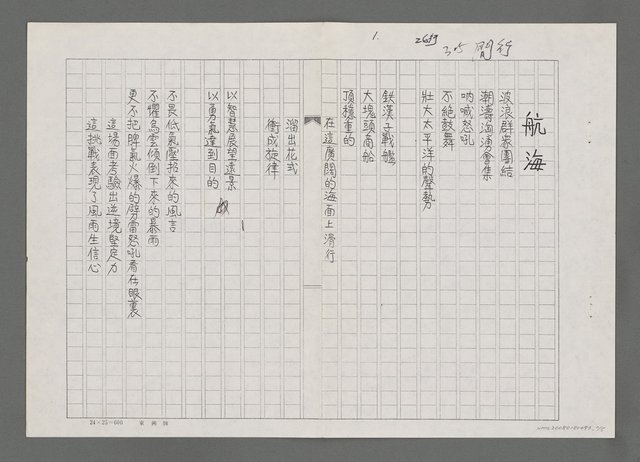 1.
航海
波浪群眾團結
潮濤洶湧會集
吶喊怒吼
不絕鼓舞
壯大太平洋的聲勢
鉄漢子戰艦
大塊頭商船
頂穩重的
在這廣闊的海面上滑行
溜出花式
衝成旋律
以智慧展望遠景
以勇氣達到目的
不畏低氣壓招來的風言
不懼烏雲傾倒下來的暴雨
更不把脾氣火爆的劈雷怒吼看在眼裏
這場面考驗出逆境堅定力
這挑戰表現了風雨生信心
24×25=600